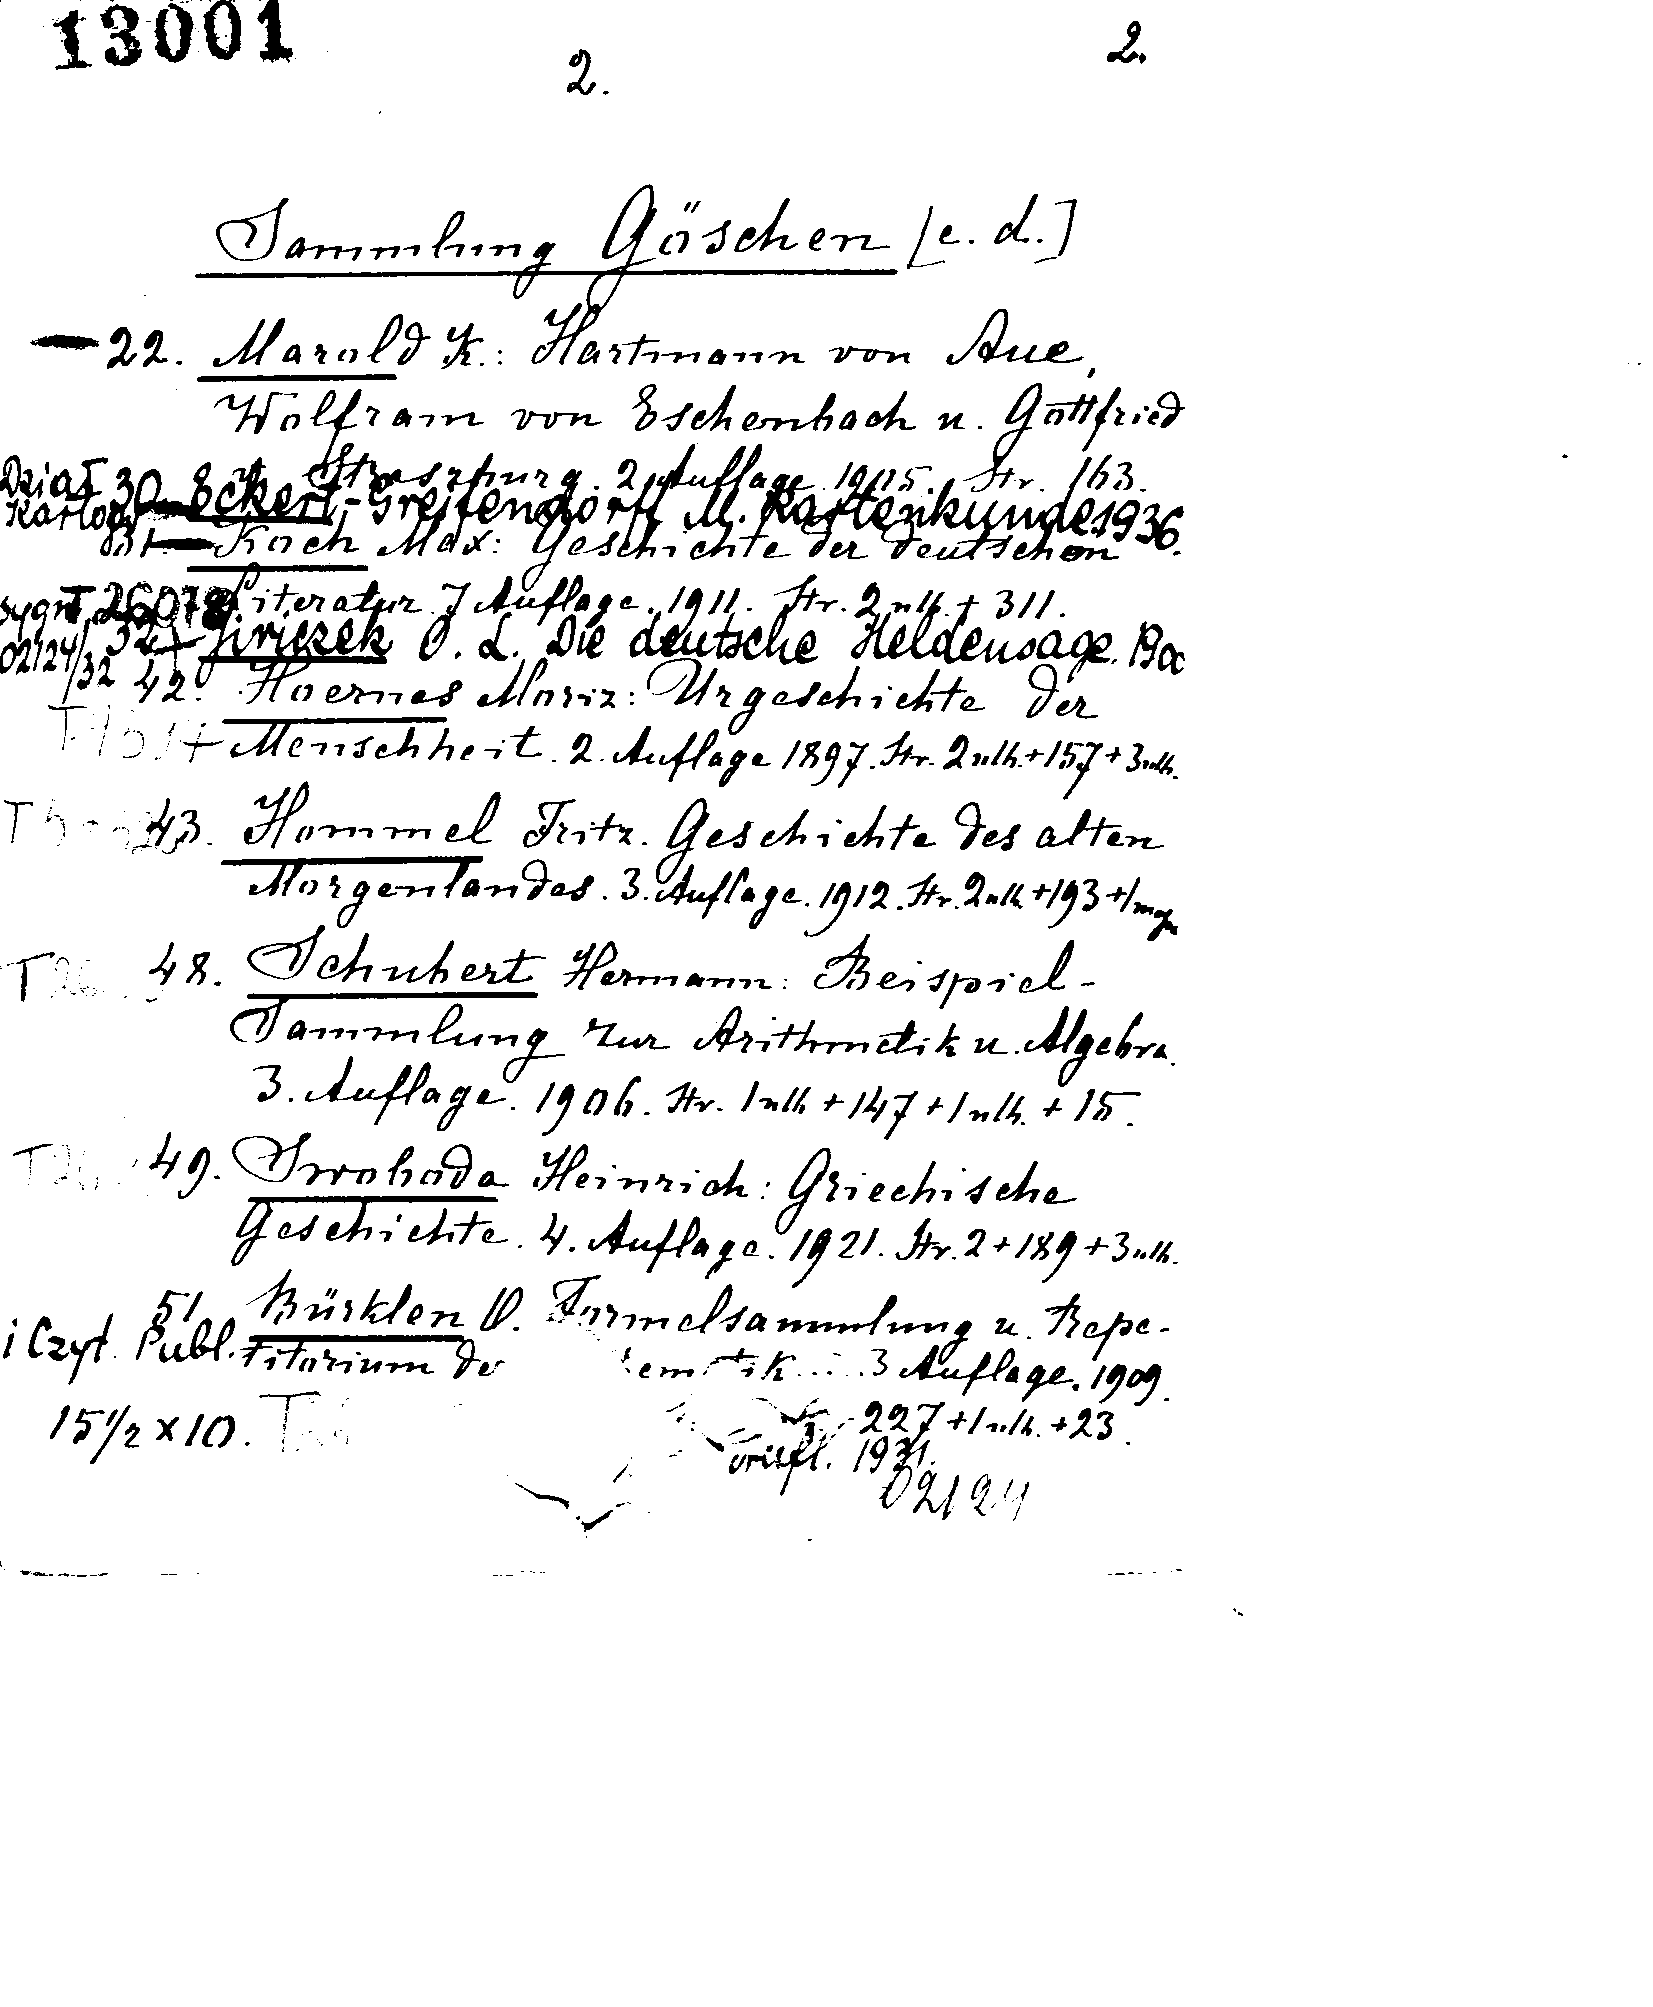 13001
2.
2.
Sammlung Göschen [c. d.]
22. Marold K.: Hartmann von Aue,
Wolfram von Eschenbach u. Gottfried
v. Straszburg. 2. Auflage. 1905. Str. 163.
Dział 30 Eckert-Greifendorff M. Kartenkunde 1936.
Kartogr.
31. Koch Max: Geschichte der deutschen
Literatur. 7 Auflage. 1911. Str. 2 nlb. + 311.
sygn. T 26078
32 Jiriczek O. L. Die deutsche Heldensage.
02124/32
42. Hoernes Moriz: Urgeschichte der
Menschheit. 2. Auflage 1897. Str. 2 nlb. + 157 + 3 nlb.
43. Hommel Fritz. Geschichte des alten
Morgenlandes. 3. Auflage. 1912. Str. 2 nlb. + 193 + 1
T 26 48. Schubert Hermann: Beispiel-
Sammlung zur Arithmetik u. Algebra.
3. Auflage. 1906. Str. 1 nlb + 147 + 1 nlb. + 15.
49. Swoboda Heinrich: Griechische
Geschichte. 4. Auflage. 1921. Str. 2 + 189 + 3 nlb.
51 Bürklen O. Formelsammlung u. Repe-
i Czyt. Publ. titorium de 3 Auflage. 1909.
15 1/2 x 10. 227 + 1 nlb. + 23.
1931.
02124